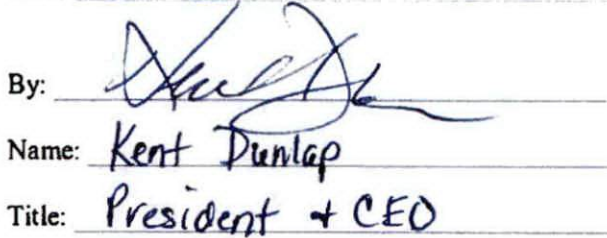 By:
Name: Kent Dunlap
Title: President + CEO